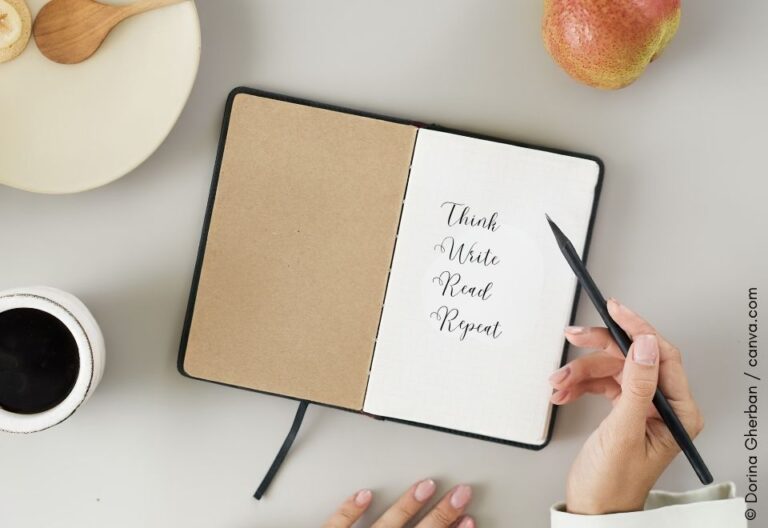 Think
Write
Read
Repeat
© Dorina Gherban / canva.com